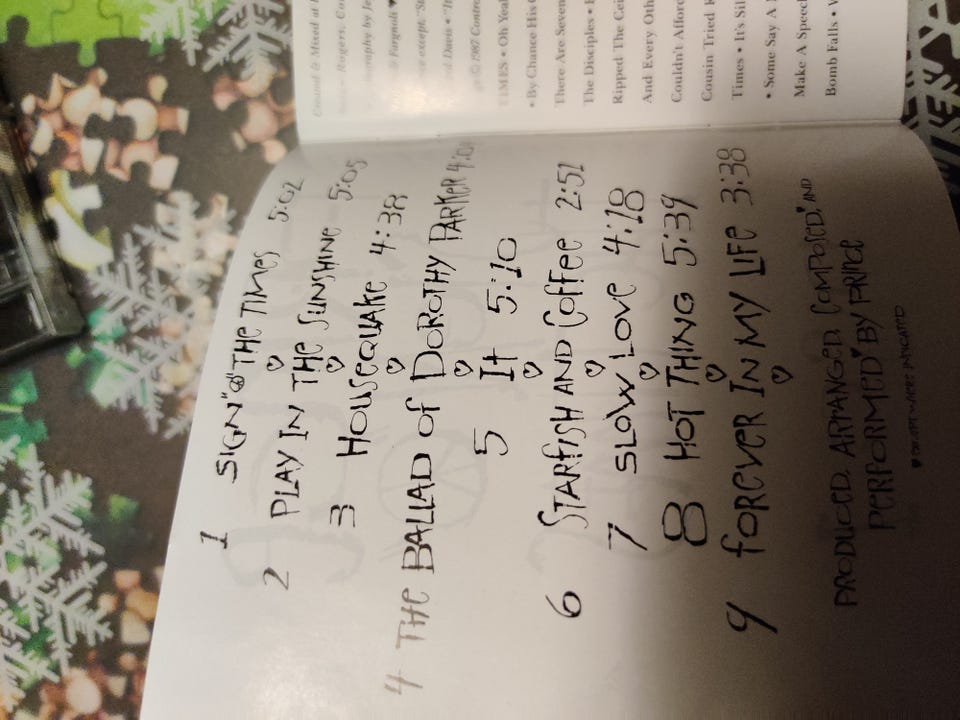 1 SIGN "☮" THE TIMES 5:02
♡
2 PLAY IN THE SUNSHINE 5:05
♡
3 HOUSEQUAKE 4:38
♡
4 THE BALLAD of DOROTHY PARKER 4:01
♡
5 It 5:10
♡
6 STARfISH AND COffEE 2:51
♡
7 SLOW LOVE 4:18
♡
8 HOT THING 5:39
♡
9 fOREVER IN MY LIFE 3:38
♡
PRODUCED, ARRANGED, COMPOSED, AND
PERFORMED BY PRINCE
♥ EXCEPT WHERE INDICATED
Rogers, Co
ography by Je
Fargnoli ♥
except: "St
Davis • "It
℗ © 1987 Contro
TIMES • Oh Yeah
• By Chance His G
There Are Seven
The Disciples •
Ripped The Cei
And Every Oth
Couldn't Afford
Cousin Tried R
Times • It's Sil
• Some Say A
Make A Speech
Bomb Falls •